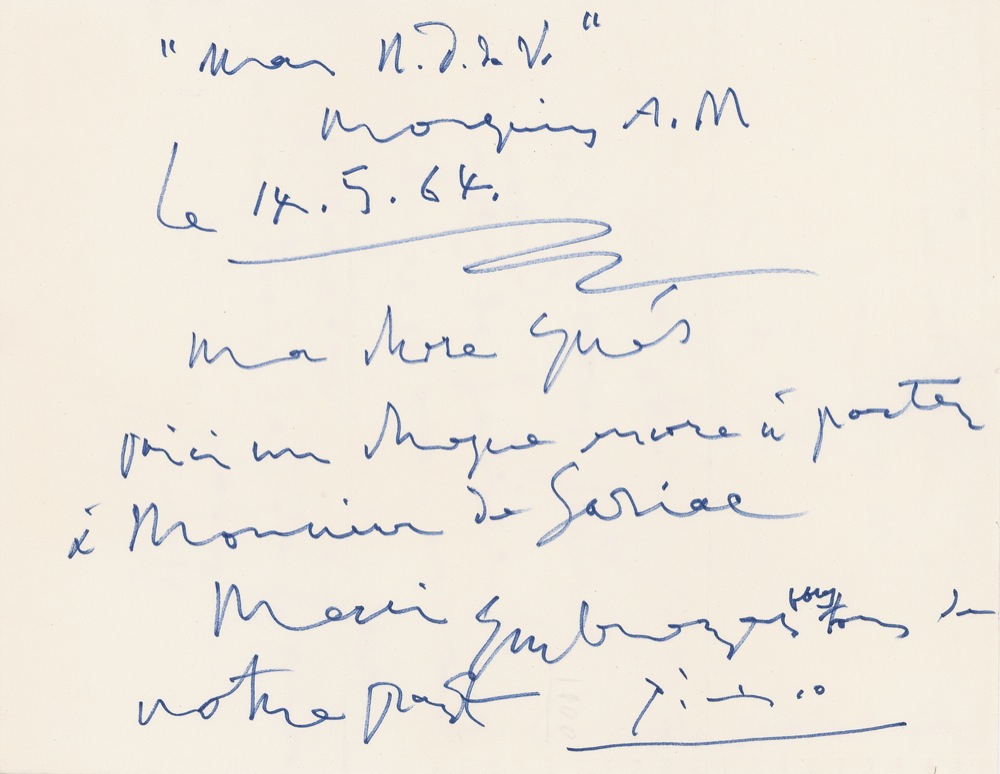 "Mas N.D. de V."
Mougins A.M
le 14.5.64.
Ma chere Ynés
voici un cheque encore à porter
à Monsieur de Sariac
Merci Embrasses tous de
notre part Picasso